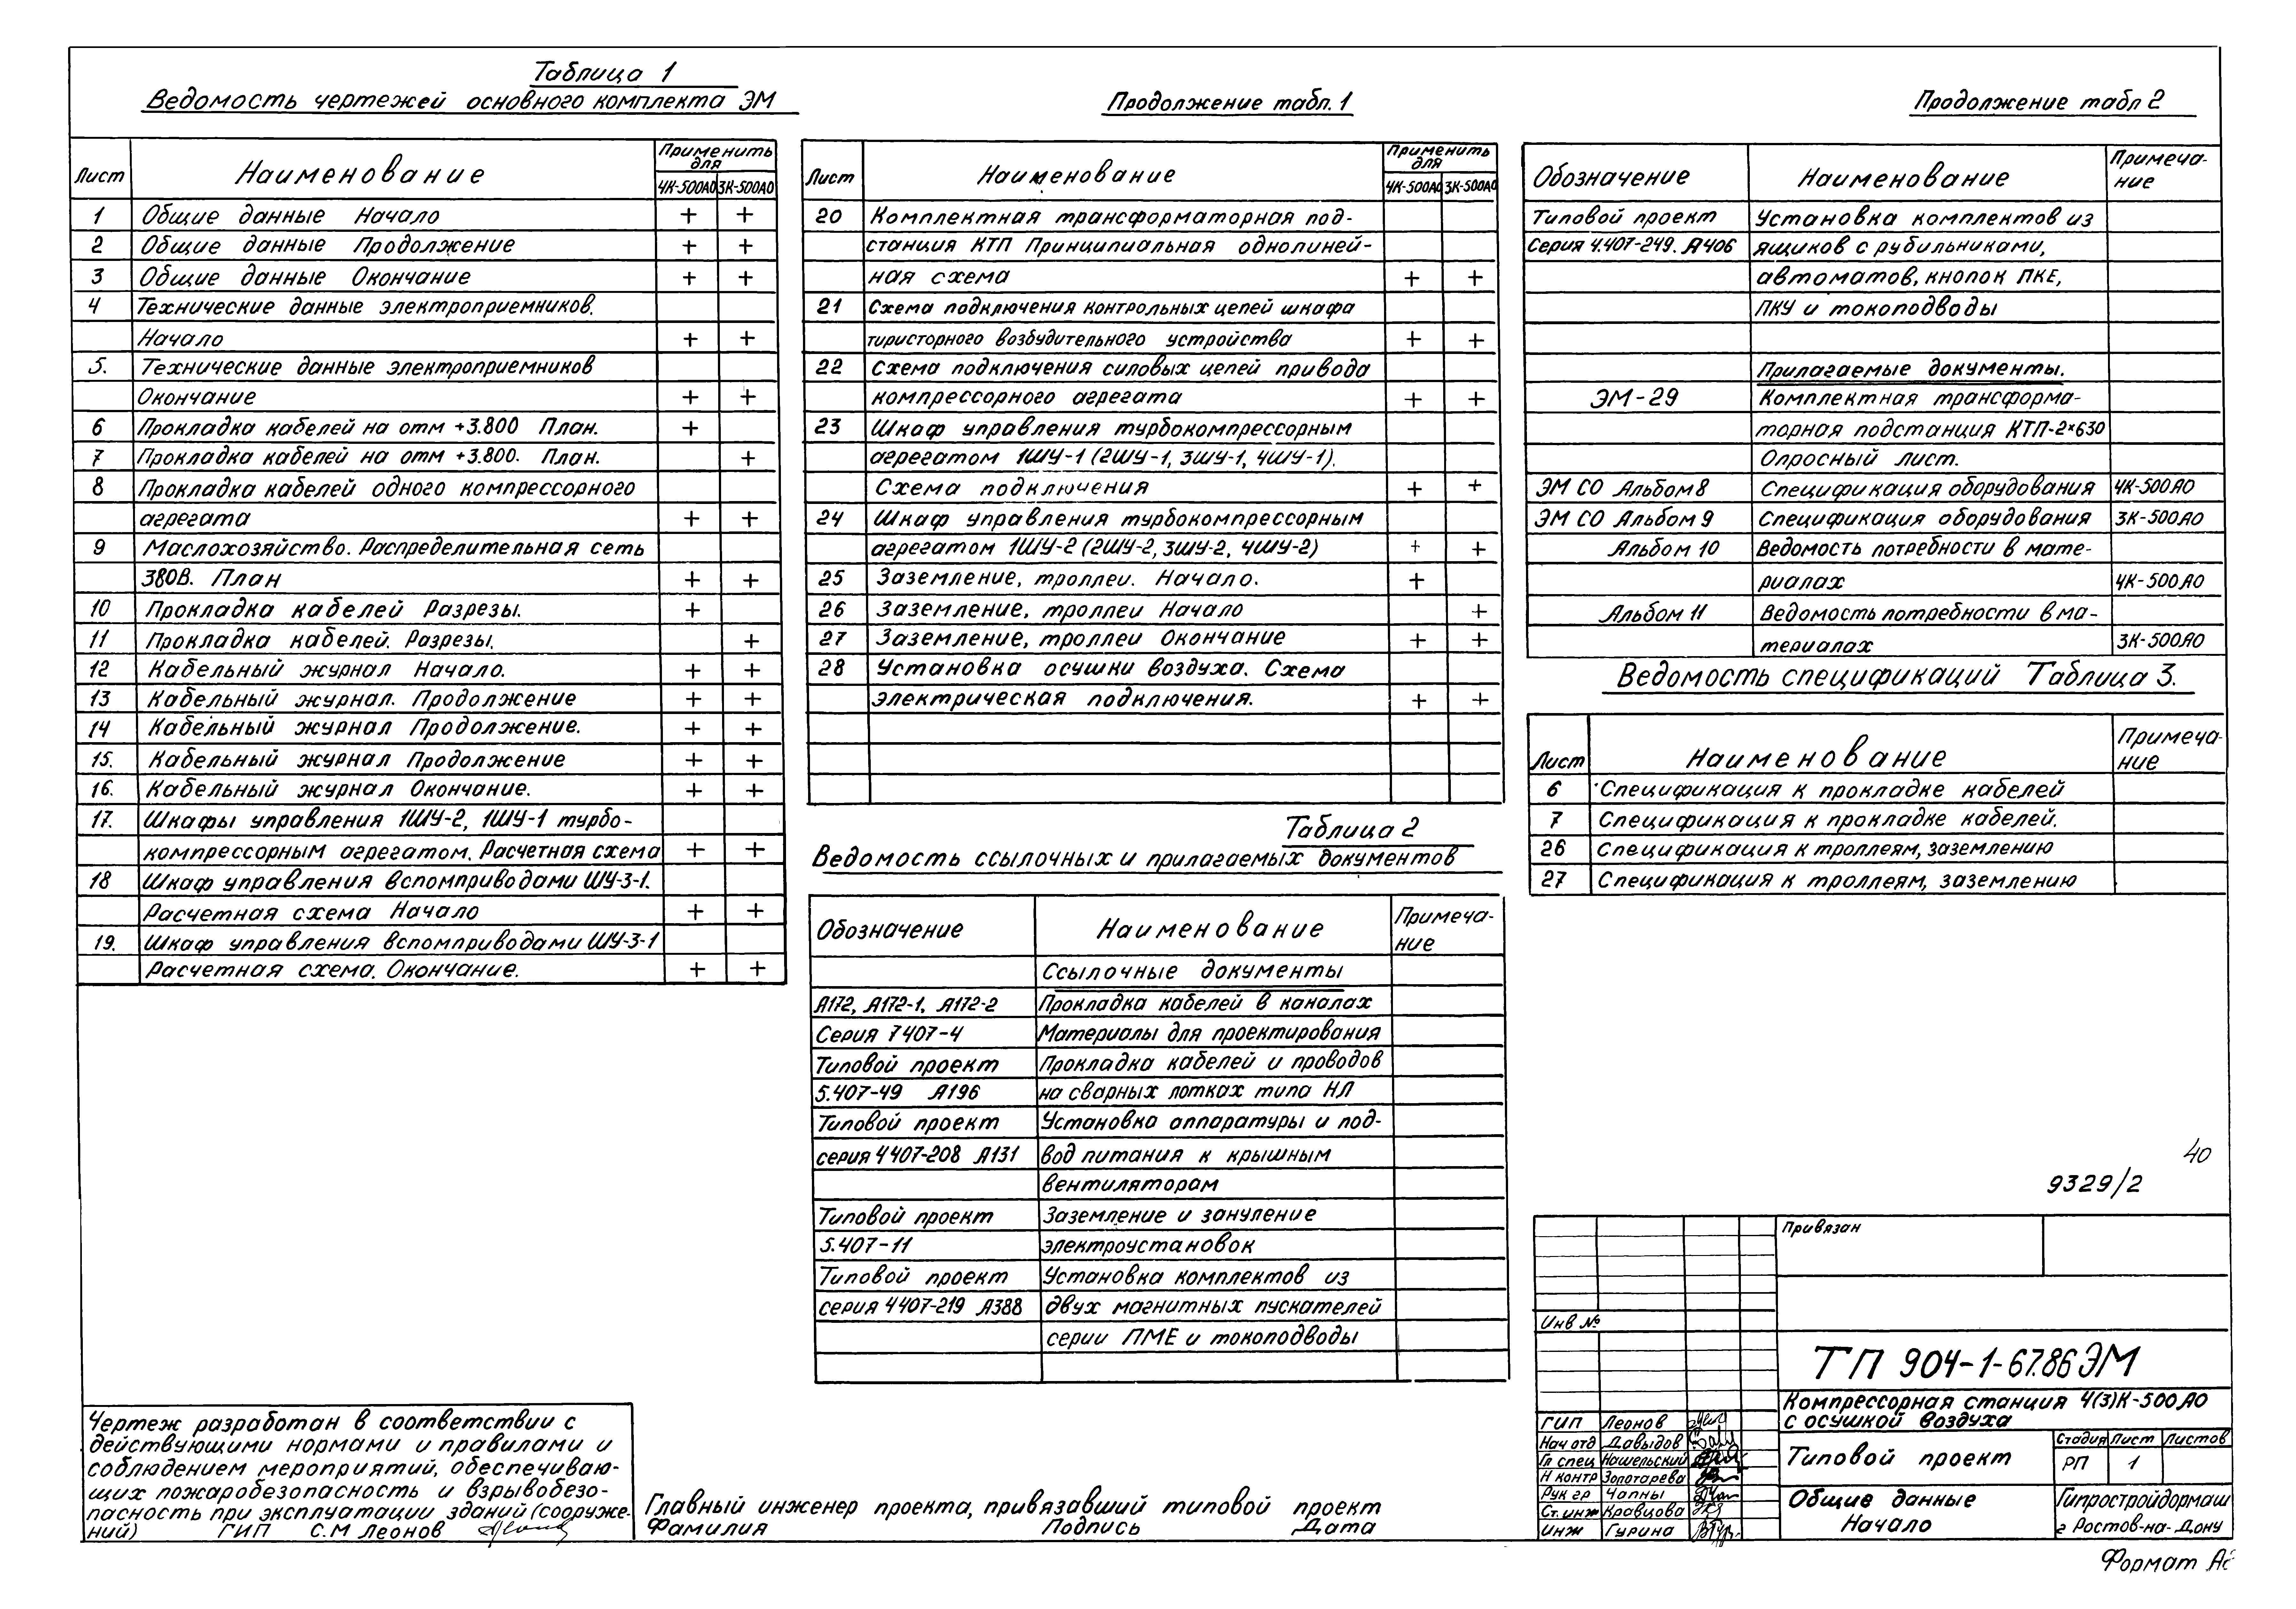 Таблица 1
Ведомость чертежей основного комплекта ЭМ
Лист Наименование Применить для
4К-500АО 3К-500АО
1 Общие данные Начало + +
2 Общие данные Продолжение + +
3 Общие данные Окончание + +
4 Технические данные электроприемников.
Начало + +
5. Технические данные электроприемников
Окончание + +
6 Прокладка кабелей на отм +3.800 План. +
7 Прокладка кабелей на отм +3.800. План. +
8 Прокладка кабелей одного компрессорного
агрегата + +
9 Маслохозяйство. Распределительная сеть
380В. План + +
10 Прокладка кабелей Разрезы. +
11 Прокладка кабелей. Разрезы. +
12 Кабельный журнал Начало. + +
13 Кабельный журнал. Продолжение + +
14 Кабельный журнал Продолжение. + +
15. Кабельный журнал Продолжение + +
16. Кабельный журнал Окончание. + +
17. Шкафы управления 1ШУ-2, 1ШУ-1 турбо-
компрессорным агрегатом. Расчетная схема + +
18 Шкаф управления вспомприводами ШУ-3-1.
Расчетная схема Начало + +
19. Шкаф управления вспомприводами ШУ-3-1
Расчетная схема. Окончание. + +
Продолжение табл. 1
Лист Наименование Применить для
4К-500АО 3К-500АО
20 Комплектная трансформаторная под-
станция КТП Принципиальная однолиней-
ная схема + +
21 Схема подключения контрольных цепей шкафа
тиристорного возбудительного устройства + +
22 Схема подключения силовых цепей привода
компрессорного агрегата + +
23 Шкаф управления турбокомпрессорным
агрегатом 1ШУ-1 (2ШУ-1, 3ШУ-1, 4ШУ-1).
Схема подключения + +
24 Шкаф управления турбокомпрессорным
агрегатом 1ШУ-2 (2ШУ-2, 3ШУ-2, 4ШУ-2) + +
25 Заземление, троллеи. Начало. +
26 Заземление, троллеи Начало +
27 Заземление, троллеи Окончание + +
28 Установка осушки воздуха. Схема
электрическая подключения. + +
Таблица 2
Ведомость ссылочных и прилагаемых документов
Обозначение Наименование Примеча-
ние
Ссылочные документы
А172, А172-1, А172-2 Прокладка кабелей в каналах
Серия 7407-4 Материалы для проектирования
Типовой проект Прокладка кабелей и проводов
5.407-49 А196 на сварных лотках типа НЛ
Типовой проект Установка аппаратуры и под-
серия 4407-208 А131 вод питания к крышным
вентиляторам
Типовой проект Заземление и зануление
5.407-11 электроустановок
Типовой проект Установка комплектов из
серия 4407-219 А388 двух магнитных пускателей
серии ПМЕ и токоподводы
Продолжение табл 2
Обозначение Наименование Примеча-
ние
Типовой проект Установка комплектов из
Серия 4.407-249. А406 ящиков с рубильниками,
автоматов, кнопок ПКЕ,
ПКУ и токоподводы
Прилагаемые документы.
ЭМ-29 Комплектная трансформа-
торная подстанция КТП-2×630
Опросный лист.
ЭМ СО Альбом 8 Спецификация оборудования 4К-500АО
ЭМ СО Альбом 9 Спецификация оборудования 3К-500АО
Альбом 10 Ведомость потребности в мате-
риалах 4К-500АО
Альбом 11 Ведомость потребности в ма-
териалах 3К-500АО
Ведомость спецификаций Таблица 3.
Лист Наименование Примеча-
ние
6 Спецификация к прокладке кабелей
7 Спецификация к прокладке кабелей.
26 Спецификация к троллеям, заземлению
27 Спецификация к троллеям, заземлению
40
9329/2
Привязан
Инв №
ТП 904-1-67.86 ЭМ
Компрессорная станция 4(3)К-500АО
с осушкой воздуха
ГИП Леонов
Нач отд Давыдов
Гл спец Нашельский
Н контр Золотарева
Рук гр Чапны
Ст. инж Кравцова
Инж Гурина
Типовой проект
Стадия Лист Листов
РП 1
Общие данные
Начало
Гипростройдормаш
г Ростов-на-Дону
Формат
Чертеж разработан в соответствии с
действующими нормами и правилами и
соблюдением мероприятий, обеспечиваю-
щих пожаробезопасность и взрывобезо-
пасность при эксплуатации зданий (сооруже-
ний) ГИП С.М Леонов
Главный инженер проекта, привязавший типовой проект
Фамилия Подпись Дата